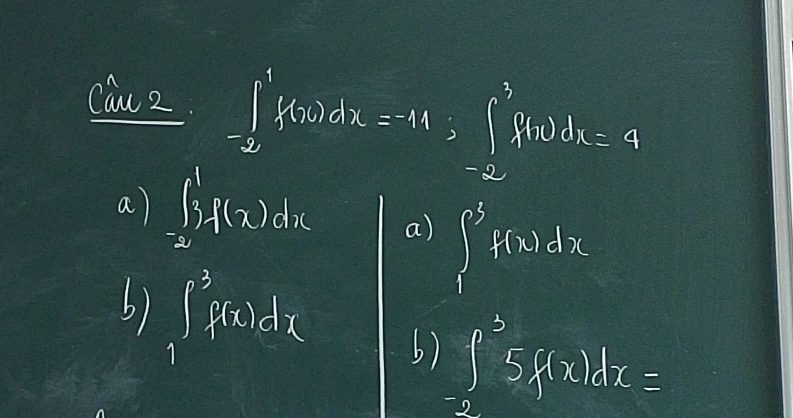 Câu 2. ∫_{-2}^{1} f(x)dx = -11 ; ∫_{-2}^{3} f(x)dx = 4
a) ∫_{-2}^{1} 3f(x)dx
b) ∫_{1}^{3} f(x)dx
a) ∫_{1}^{3} f(x)dx
b) ∫_{-2}^{3} 5f(x)dx =